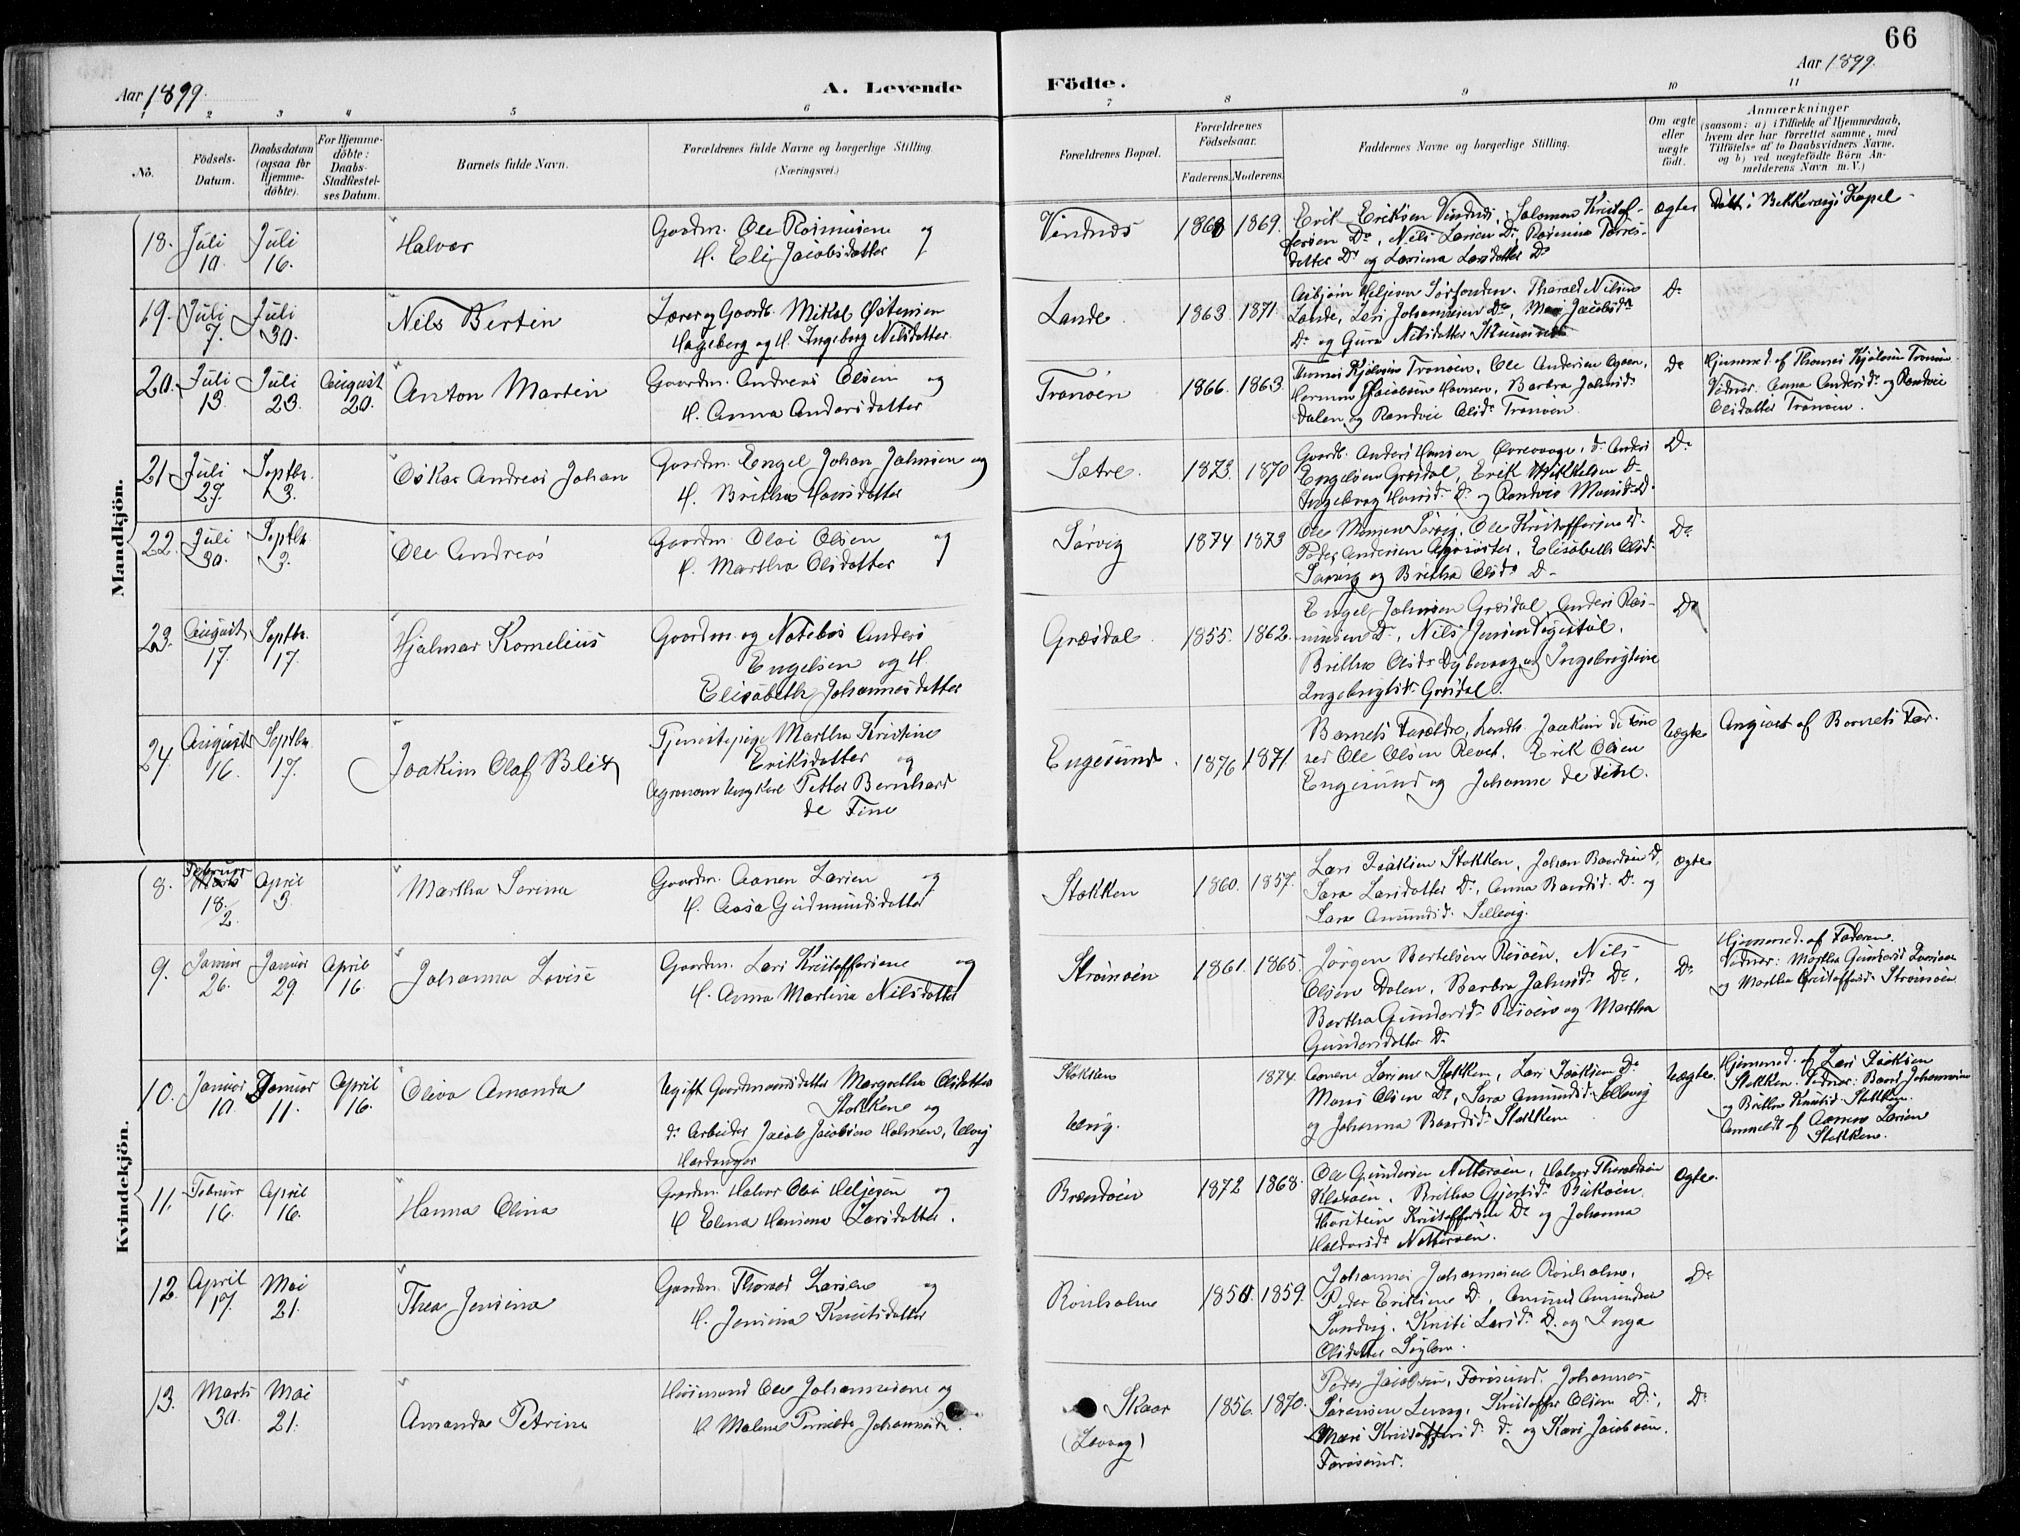 66
Aar 1899.
A. Levende
Födte.
Aar 1899.
1 2 3 4 5 6 7 8 9 10 11
No.
Födsels-
Datum.
Daabsdatum
(ogsaa for
Hjemme-
döbte).
For Hjemme-
döbte:
Daabs-
Stadfæstel-
ses Datum.
Barnets fulde Navn.
Forældrenes fulde Navne og borgerlige Stilling.
(Næringsvei.)
Forældrenes Bopæl.
Forældrenes
Födselsaar.
Faderens. Moderens.
Faddernes Navne og borgerlige Stilling.
Om ægte
eller
uægte
født.
Anmærkninger
(saasom: a) i Tilfælde af Hjemmedaab,
hvem der har forrettet samme, med
Tilföielse af to Daabsvidners Navne,
og b) ved uægtefödte Börn An-
melderens Navn m. V.)
Mandkjön.
18. Juli 10. Juli 16. Halvor
Gaardm. Ole Rasmusen og
H. Eli Jacobsdatter
Vindnæs 1860 1869.
Erik Eriksen Vindnæs, Salomon Kristof-
fersen Do, Nils Larsen Do, Rasmine Torres-
datter Do og Larsina Larsdatter Do
Ægte
Døbt i Bekkervigs Kapel
19. Juli 7. Juli 30. Nils Bertin
Lærer og Gaardb. Mikal Østensen
Hageberg og H. Ingeborg Nilsdatter
Lande. 1863 1871.
Lande, Lars Johannesen Do, Jacobsdr
Do og Guro Nilsdatter
Do
20. Juli 13. Juli 23. August 20. Anton Martin
Gaardm. Andreas Olsen og
H. Anna Andersdatter
Tranøen 1866. 1863.
Tranøen, Ole Andersen
Jacobsen Havnen, Barbra Johnsdr
Dalen og Randvei Olsdr Tranøen.
Do
Hjemmed. af Thomas Tranøen
Vidner: Anna Andersdr og Randvei
Olsdatter Tranøen.
21. Juli 29. Septbr. 3. Oskar Andreas Johan
Gaardm. Engel Johan Johnsen og
H. Britha Hansdatter
Sætre. 1873. 1870
Gaardb. Anders Hansen
Engelsen Græsdal, Erik Mikkelsen Do
Ingeborg Hansdr Do og Randvei Monsdr Do.
Do
22. Juli 30. Septbr. 3. Ole Andreas
Gaardm. Olai Olsen og
H. Martha Olsdatter
Sørvig 1874 1873
Ole Monsen Sørvig, Ole Kristoffersen Do
Peder Andersen, Elisabeth Olsdr
Sørvig og Britha Olsdr Do
Do
23. August 17. Septbr. 17. Hjalmar Kornelius
Gaardm. og Notebas Anders
Engelsen og H.
Elisabeth Johannesdatter
Græsdal. 1855. 1862.
Engel Johnsen Græsdal, Anders Ras-
musen Do, Nils Jensen
Britha Olsdr Dybevaag og Ingebrigtine
Ingebrigtsdr Græsdal.
Do
24. August 16. Septbr. 17. Joakim Olaf Blix
Tjenestepige Martha Kristine
Eriksdatter og
Agronom Ungkarl Petter Bernhard
de Fine
Engesund. 1876 1871
Barnets Forældre, Joakim de Fine
Ole Olsen Revet, Erik Olsen
Engesund og Johanne de Fine.
Uægte
Angivet af Barnets Far.
Kvindekjön.
8. Februar 18/2. April 3. Martha Sorina
Gaardm. Aanen Larsen og
H. Aasa Gudmundsdatter
Stokken 1860. 1857.
Lars Isaksen Stokken, Johan Baardsen Do,
Sara Larsdatter Do, Anna Baardsdr Do og
Sara Amundsdr Sellevig.
Ægte
9. Januar 26. Januar 29. April 16. Johanna Lovise
Gaardm. Lars Kristoffersen og
H. Anna Martina Nilsdatter
Strømøen 1861. 1865.
Jørgen Bertelsen Risøen, Nils
Olsen Dalen, Barbra Johnsdr Do,
Bertha Gundersdr Risøen og Martha
Gundersdatter Do
Do
Hjemmed. af Faderen.
Vidner: Martha Gundersdr
og Martha Kristoffersdr Strømøen
10. Januar 10. Januar 11. April 16. Oliva Amanda
Ugift Gaardmandsdatter Margretha Olsdatter
Stokken og
do Arbeider Jacob Jacobsen Holmen, Ulvig
Hardanger
Stokken
Ulvig. 1874.
Aanen Larsen Stokken, Lars Isaksen Do
Mons Olsen Do, Sara Amundsdr Sellevig
og Johanna Baardsdr Stokken
Uægte.
Hjemmed. af Lars Isaksen
Stokken. Vidner: Baard Johannesen
og Britha Knutsdr Stokken.
Anmeldt af Aanen Larsen
Stokken.
11. Februar 16. April 16. Hanna Olina
Gaardm. Halvor Olai Heljesen og
H. Elena Hansina Larsdatter.
Brandøen 1872 1868.
Ole Gundersen Nøtterøen, Halvor Thoraldsen
Britha Gjertsdr
Thorstein Kristoffersen Do og Johanna
Haldorsdr Nøtterøen.
Ægte.
12. April 17. Mai 21. Thea Jensina
Gaardm. Thomas Larsen og
H. Jensina Knutsdatter
Rønholme 1859.
Johannes Johannesen Rønholme,
Peder Eriksen Do, Amund Amundsen
Sandvig, Larsdr Do og Inga
Olsdatter
Do
13. Marts 30. Mai 21. Amanda Petrine
Huusmand Ole Johannesen og
H. Malene Pernilde Johannesdr.
Skaar
(Løvaag) 1856. 1870.
Peder Jacobsen, Færøsund. Johannes
Sørensen Løvaag, Kristoffer Olsen Do,
Mari Kristoffersdr do og Kari Jacobsen,
Færøsund.
Do